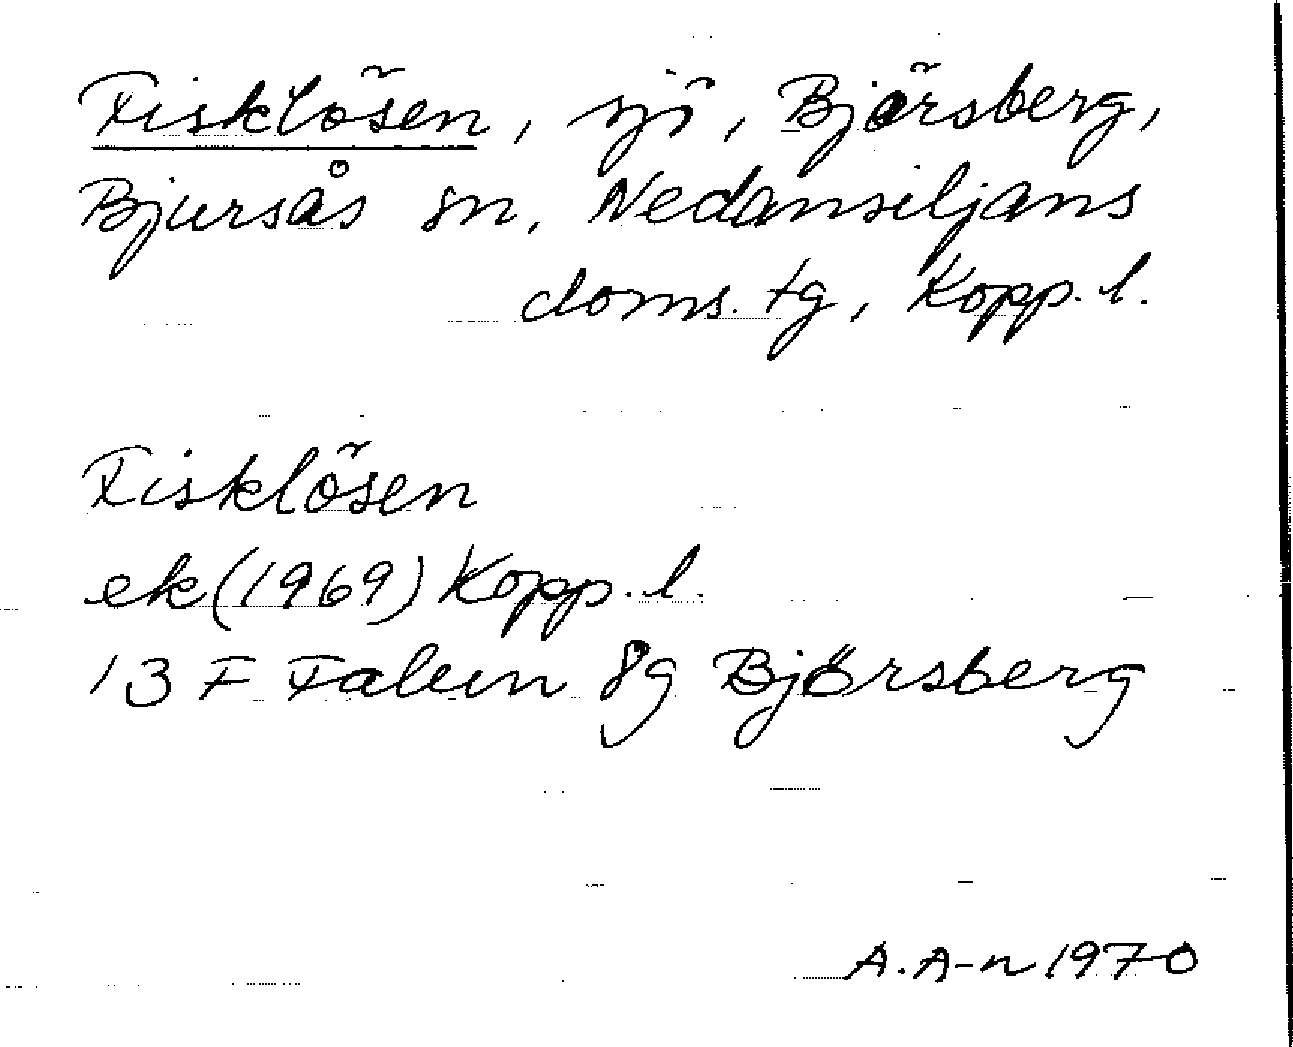 Fisklösen, sjö, Björsberg,
Bjursås sn, Nedansiljans
doms. tg, Kopp. l.
Fisklösen
ek (1969) Kopp. l.
13 F Falun 8g Björsberg
A. A-n 1970